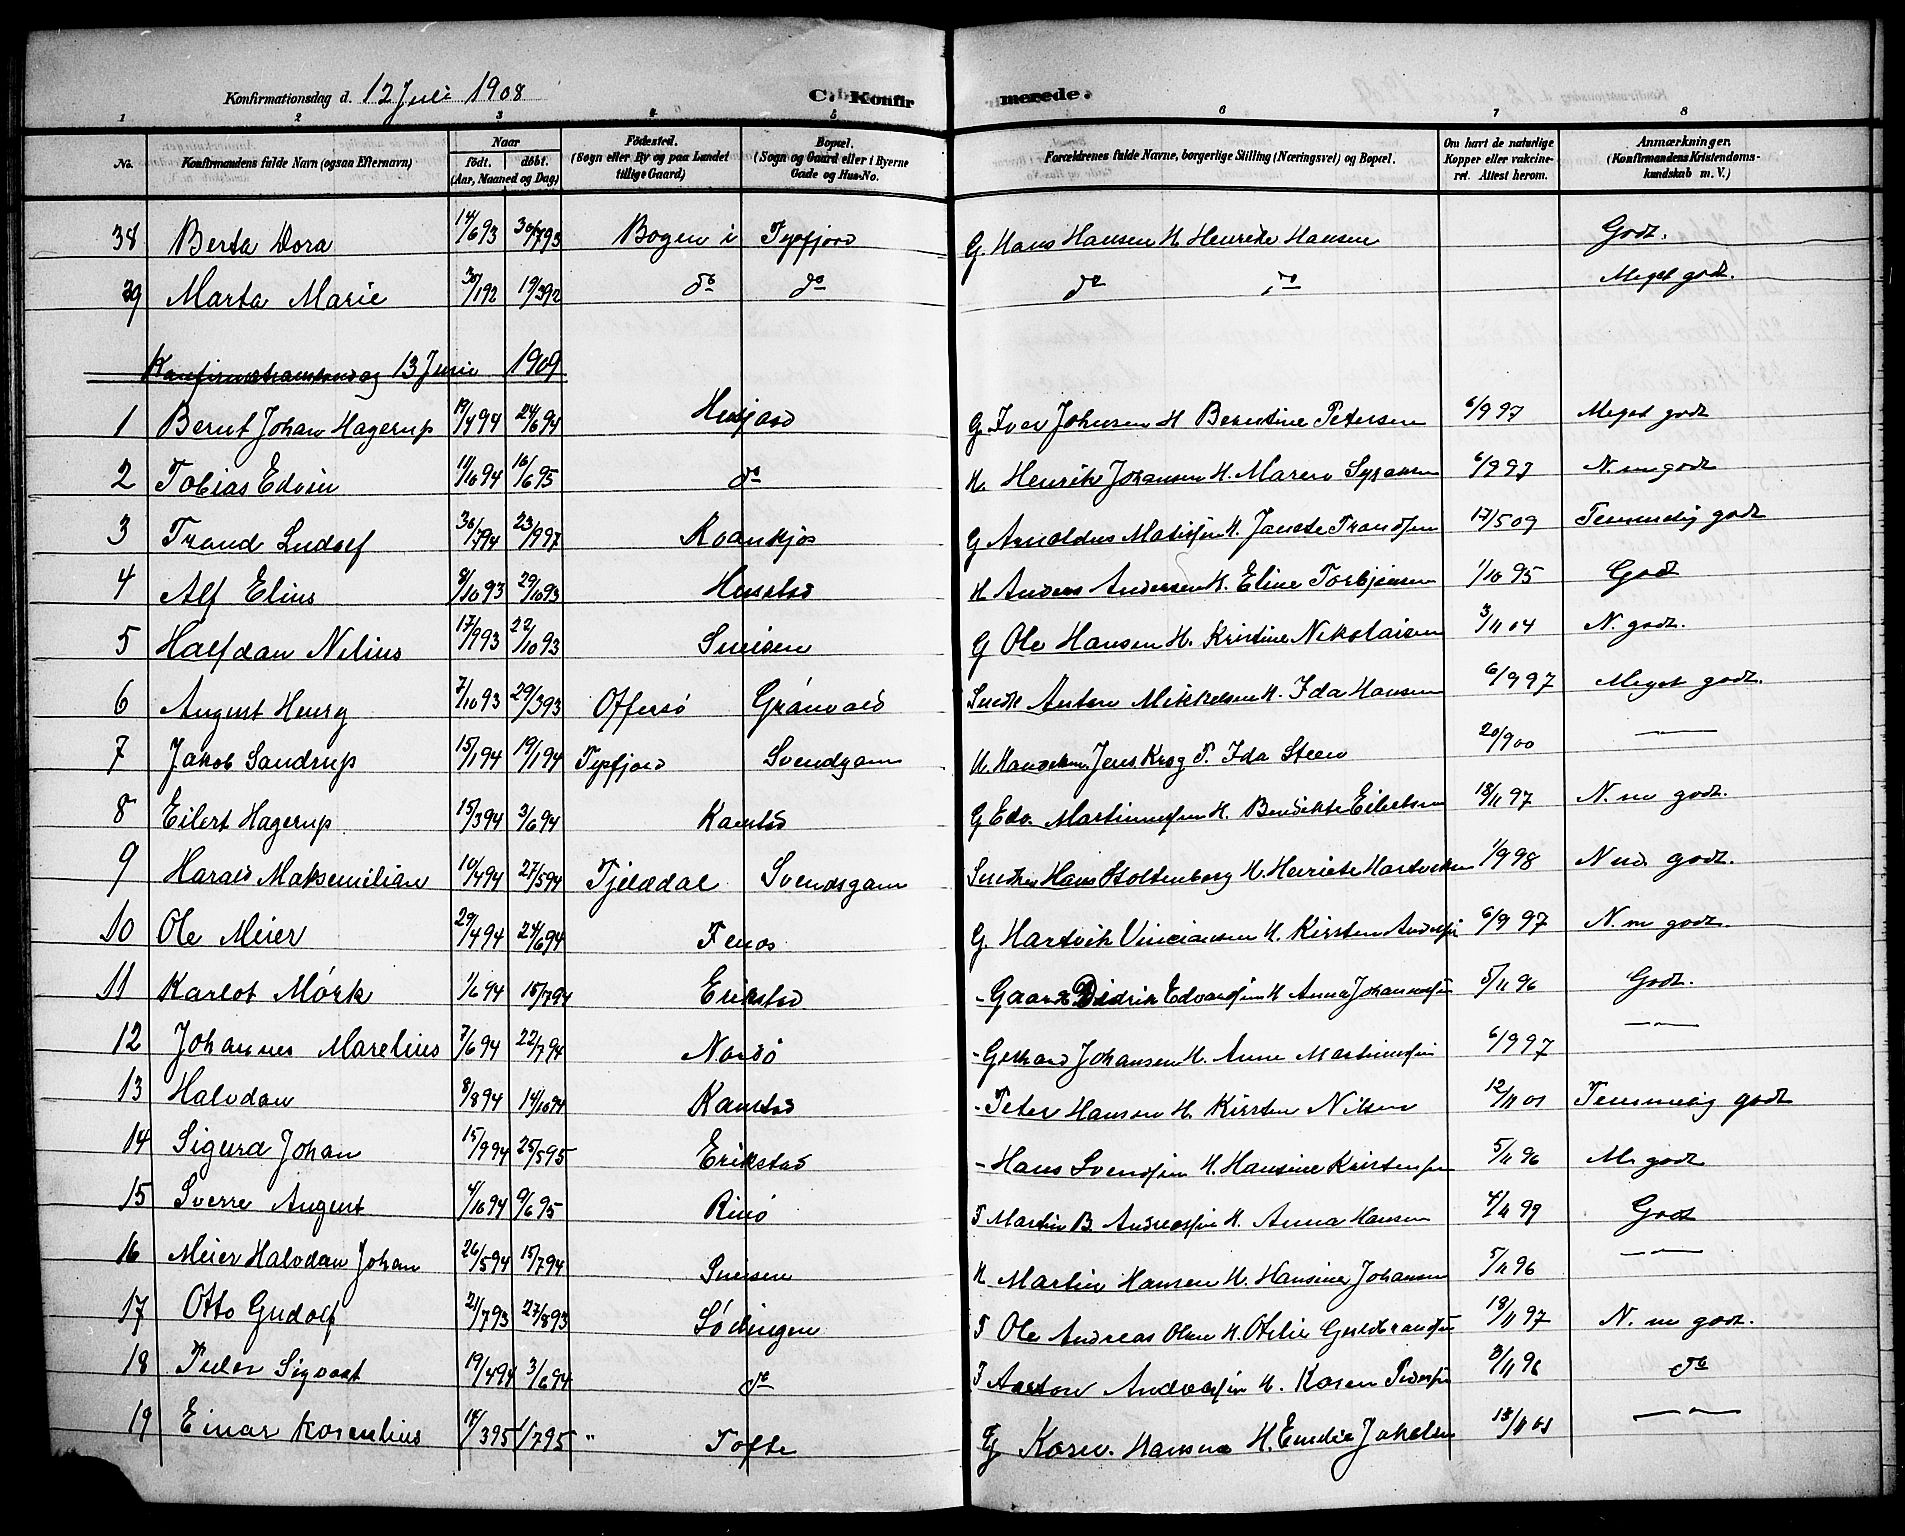 Konfirmationsdag d. 12 Juli 1908 C. Konfirmerede.
1 2 3 4 5 6 7 8
No. Konfirmandens fulde Navn (ogsaa Efternavn) Naar født. døbt. (Aar, Maaned og Dag) Fødested. (Sogn eller By og paa Landet tillige Gaard) Bopæl. (Sogn og Gaard eller i Byerne Gade og Hus-No. Forældrenes fulde Navne, borgerlige Stilling (Næringsvei) og Bopæl. Om havt de naturlige Kopper eller vakcineret. Attest herom. Anmærkninger. (Konfirmandens Kristendomskundskab m. V.)
38 Berta Dora 14/6 93 30/7 93 Bogen i Tysfjord G. Hans Hansen H. Henrike Hansen Godt.
39 Marta Marie 30/1 92 19/3 92 do do do do Meget godt.
13 Juni 1909
1 Bernt Johan Hagerup 19/4 94 24/6 94 G. Iver Johnsen H Berntine Petersen 6/9 97 Meget godt
2 Tobias Edvin 11/10 94 16/6 95 do H. Henrik Johansen H. Maren 6/9 97 N. m godt
3 Trond Ludolf 30/7 94 23/9 97 G Arnoldus H. Janette 17/5 09 Temmelig godt
4 Alf Elius 8/10 93 29/10 93 Husstad H Anders Andersen H. Eline Torbjørnsen 1/10 95 Godt
5 Halfdan Nilius 17/9 93 22/10 93 G Ole Hansen H. Kristine Nikolaisen 3/11 04 N. godt.
6 August Henry 7/10 93 29/3 93 Offersö Grönvold Snedk Anton Mikkelsen H. Ida Hansen 6/9 97 Meget godt.
7 Jakob Sandrup 15/1 94 19/1 94 Tysfjord Svendsgam H. Jens Krog F. Ida Steen 20/9 00 —"—
8 Eilert Hagerup 15/3 94 3/6 94 Kanstad G Edv. H. Bendikte Eilertsen 18/11 97 N. m godt.
9 Harald Maksemilian 10/4 94 27/5 94 Tjeldedal Svendsgam Hans Stoltenberg H. Henriete 1/9 98 godt.
10 Ole Meier 29/4 94 24/6 94 G. Hartvik H. Kirsten 6/9 97 N. m godt.
11 Karlot Mörk 1/6 94 15/7 94 Erikstad - Didrik H Anna 5/11 96 Godt.
12 Johannes Marelius 7/6 94 22/7 94 - Gerhard Johansen H. Anne 6/9 97 —"—
13 Halvdan 8/8 94 14/10 94 Kanstad - Peter Hansen H. Kirsten Nilsen 12/11 01 Temmelig godt
14 Sigurd Johan 15/9 94 25/5 95 Erikstad - Hans Svendsen H. Hansine 5/11 96 M. godt
15 Sverre August 4/10 94 9/6 95 Rinö F Martin B. H. Anna Hansen 4/11 99 Godt
16 Meier Halvdan Johan 26/5 94 15/7 94 H Martin Hansen H. Hansine Johansen 5/11 96 —"—
17 Otto Gudolf 21/7 93 27/8 93 Lödingen F Ole Andreas Olsen H. Otelie 18/11 97 N. m godt.
18 Peder Sigvart 19/4 94 3/6 94 do F Anton H. Karen 3/11 96 do
19 Einar Kornelius 18/3 95 1/7 95 " Tofte Korn. Hansen H. Emelie 18/11 01 —"—